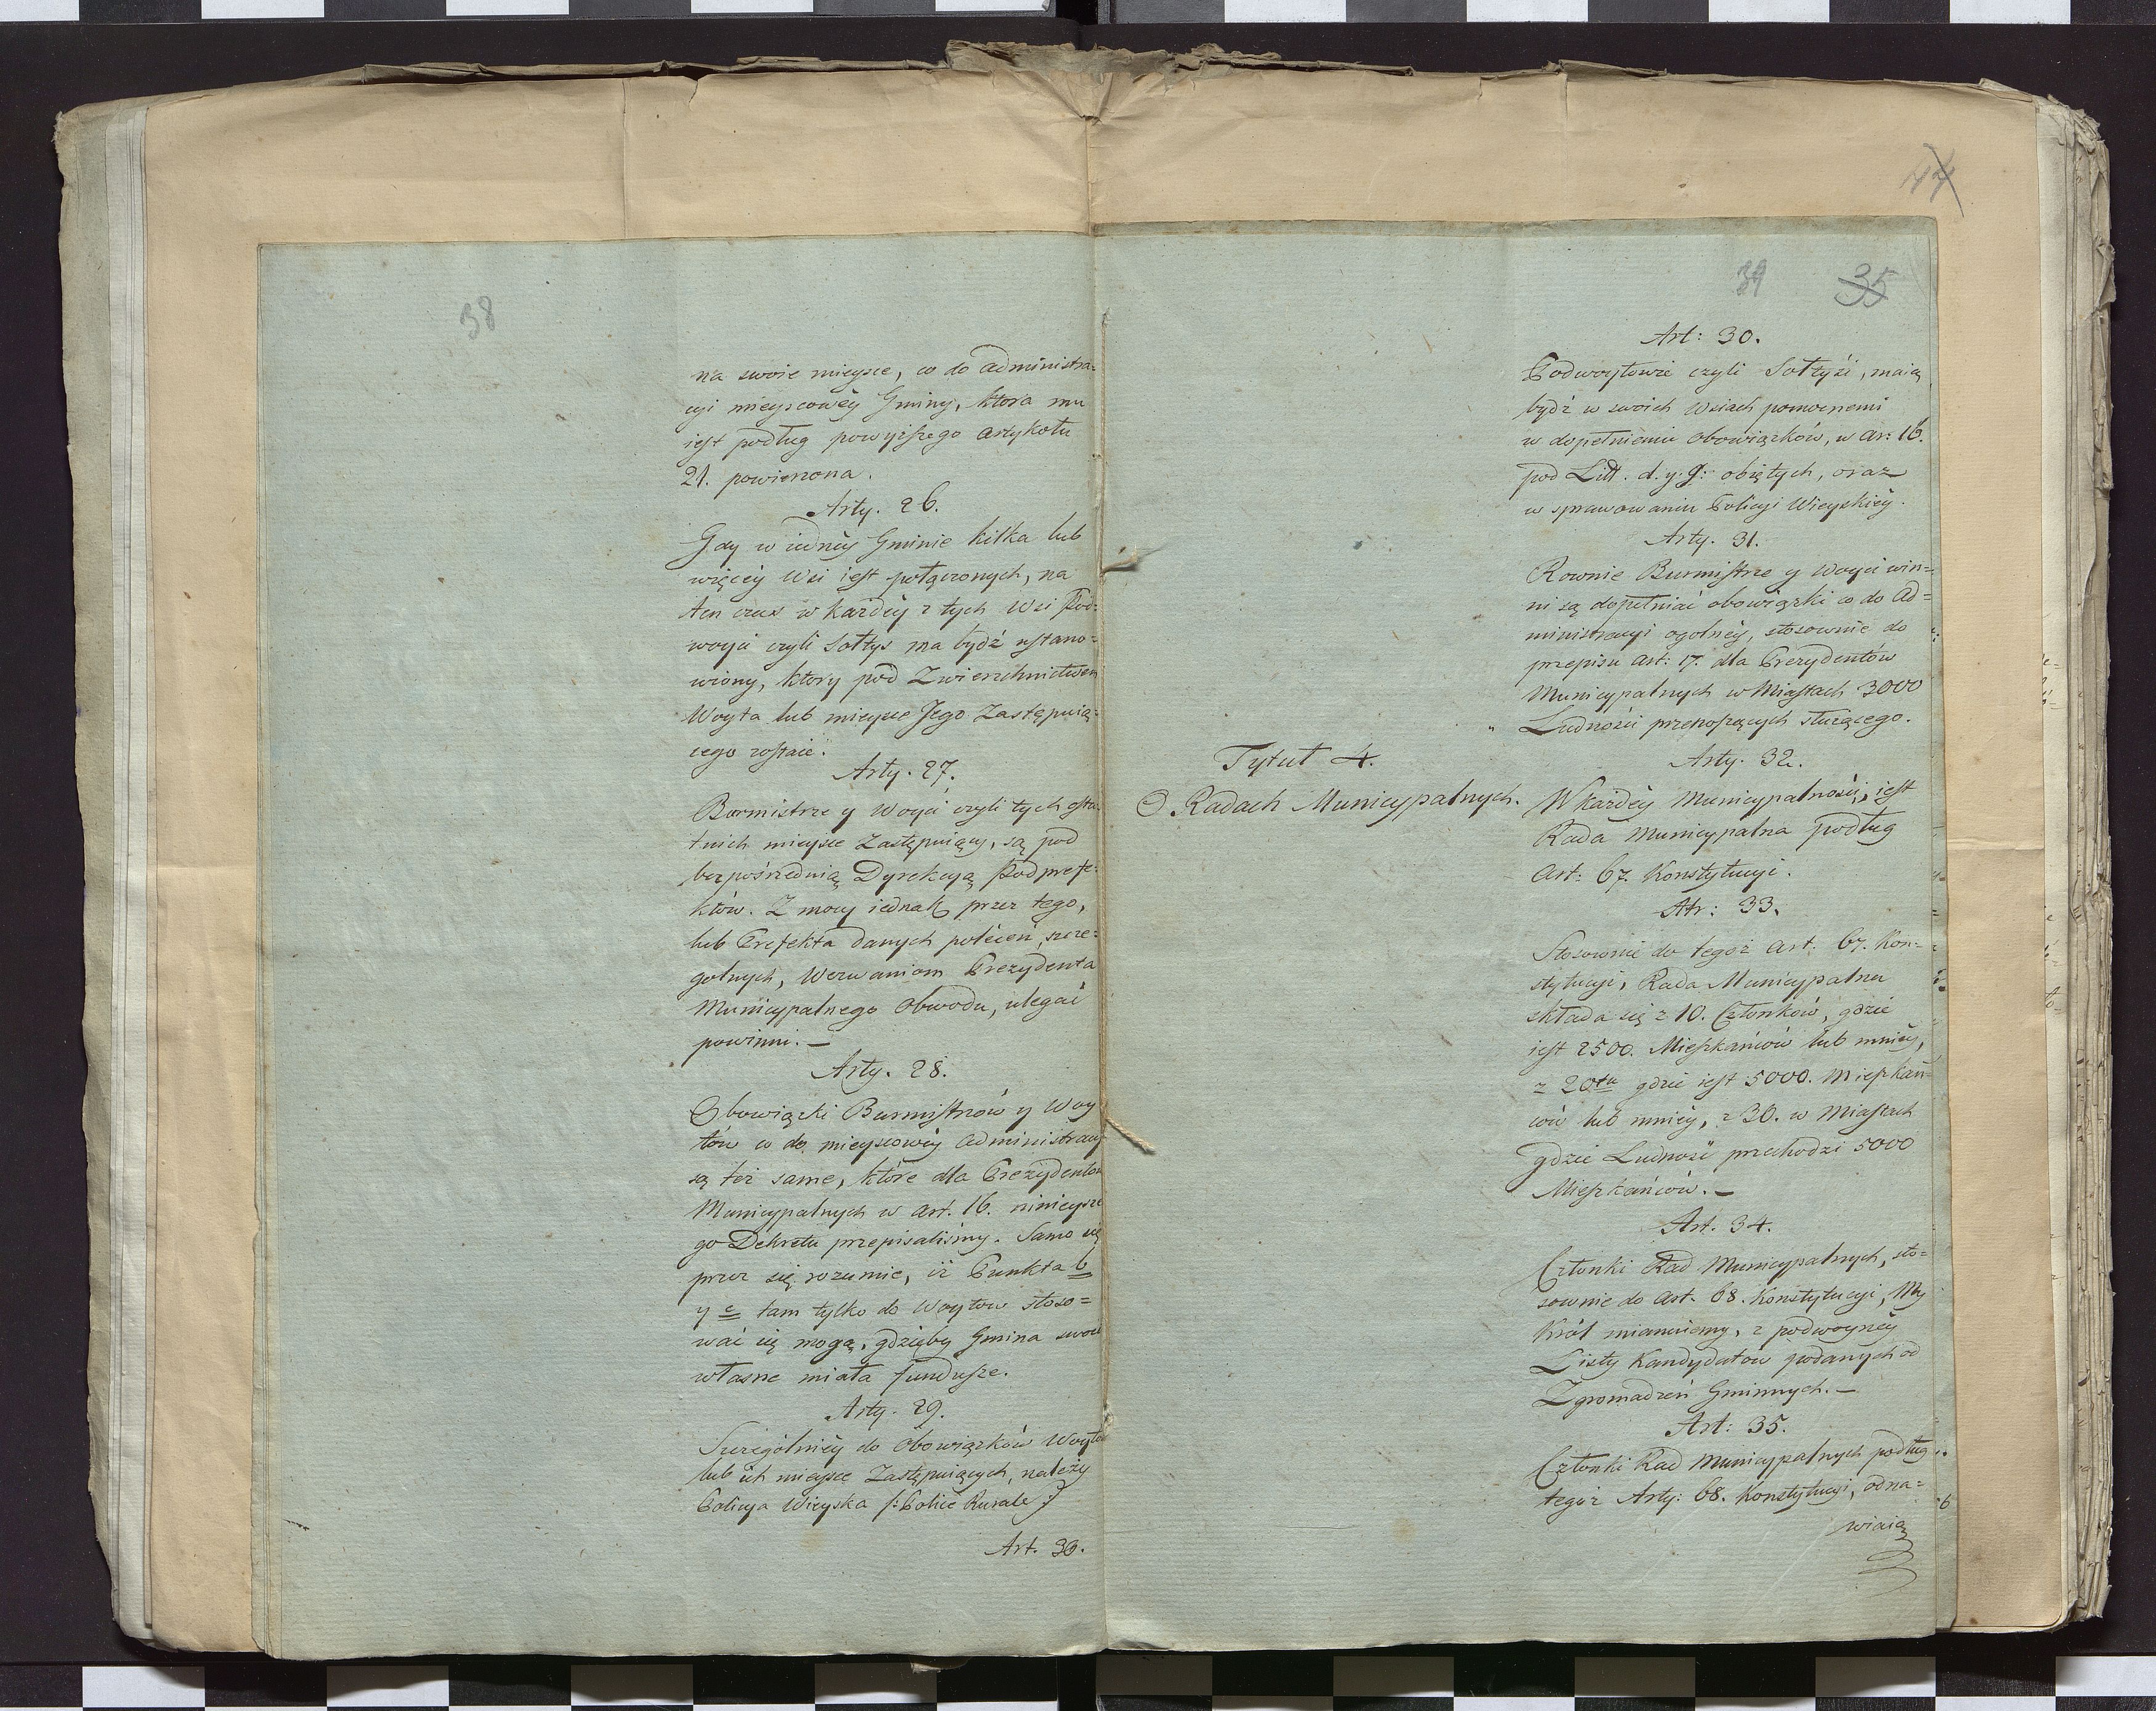 38
na swoie mieysce, co do administra=
cyi mieyscowéy Gminy, ktora mu
iest podług powyższego artykołu
21. powierzona.
Arty. 26.
Gdy w iednéy Gminie kilka lub
więcéy Wsi iest połączonych, na
ten czas w każdéy z tych Wsi Pod=
woyci czyli Sołtys ma bydź ustano=
wiony, ktory pod Zwierzchnictwem
Woyta lub mieysce Jego Zastępuią=
cego zostaie.
Arty. 27.
Burmistrze y Woyci czyli tych osta=
tnich mieysce Zastępuiący, są pod
bezpośrzednią Dyrekcyą Podprefe=
któw. Z mocy iednak przez tego,
lub Prefekta danych poleceń, szcze=
golnych, Wezwaniom Prezydenta
Municypalnego Obwodu, ulegać
powinni. —
Arty. 28.
Obowiązki Burmistrzów y Woy
tów co do mieyscowéy administracyi
są też same, które dla Prezydentów
Municypalnych w art. 16. ninieysze
go Dekretu przepisaliśmy. Samo się
przez się rozumie, iż Punkta b
y c tam tylko do Woytow stoso=
wać się mogą, gdzieby Gmina swoie
własne miała fundusze.
Arty. 29.
Szczególniéy do obowiązków Woytów
lub ich mieysce Zastępuiących, należy
Policya Wieyska /: Police Rurale :/
Art. 30.
44
39 35
Art: 30.
Podwoytowie czyli Sołtysi, maią
bydź w swoich Wsiach pomocnemi
w dopełnieniu obowiązków, w ar: 16.
pod Litt. d. y g: obiętych, oraz
w sprawowaniu Policyi Wieyskiéy.
Arty. 31.
Rownie Burmistrze y Woyci win=
ni są dopełniać obowiązki co do ad=
ministracyi ogolnéy, stosownie do
przepisu art: 17. dla Prezydentów
Municypalnych w Miastach 3000
Ludności przenoszących służącego.
Tytuł 4.
O Radach Municypalnych.
Arty. 32.
W każdéy Municypalności, iest
Rada Municypalna podług
Art: 67. Konstytucyi.
Atr: 33.
Stosownie do tegoż art: 67. Kon=
stytucyi, Rada Municypalna
składa się z 10. Członków, gdzie
iest 2500. Mieszkańców lub mniéy,
z 20tu gdzie iest 5000. Mieszkań=
ców lub mniéy, z 30. w Miastach
gdzie Ludność przechodzi 5000
Mieszkańców. —
Art. 34.
Członki Rad Municypalnych, sto=
sownie do art. 68. Konstytucyi, My
Król mianuiemy, z podwoynéy
Listy Kandydatow podanych od
Zgromadzeń Gminnych. —
Art: 35.
Członki Rad Municypalnych podług
tegoż Arty: 68. Konstytucyi, odna=
wiaią